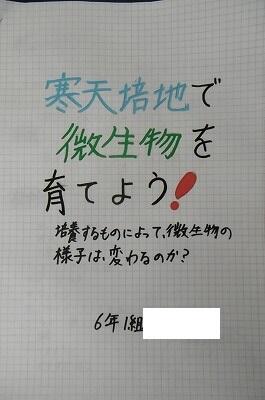 寒天培地で
微生物を
育てよう!
培養するものによって、微生物の
様子は、変わるのか?
6年1組